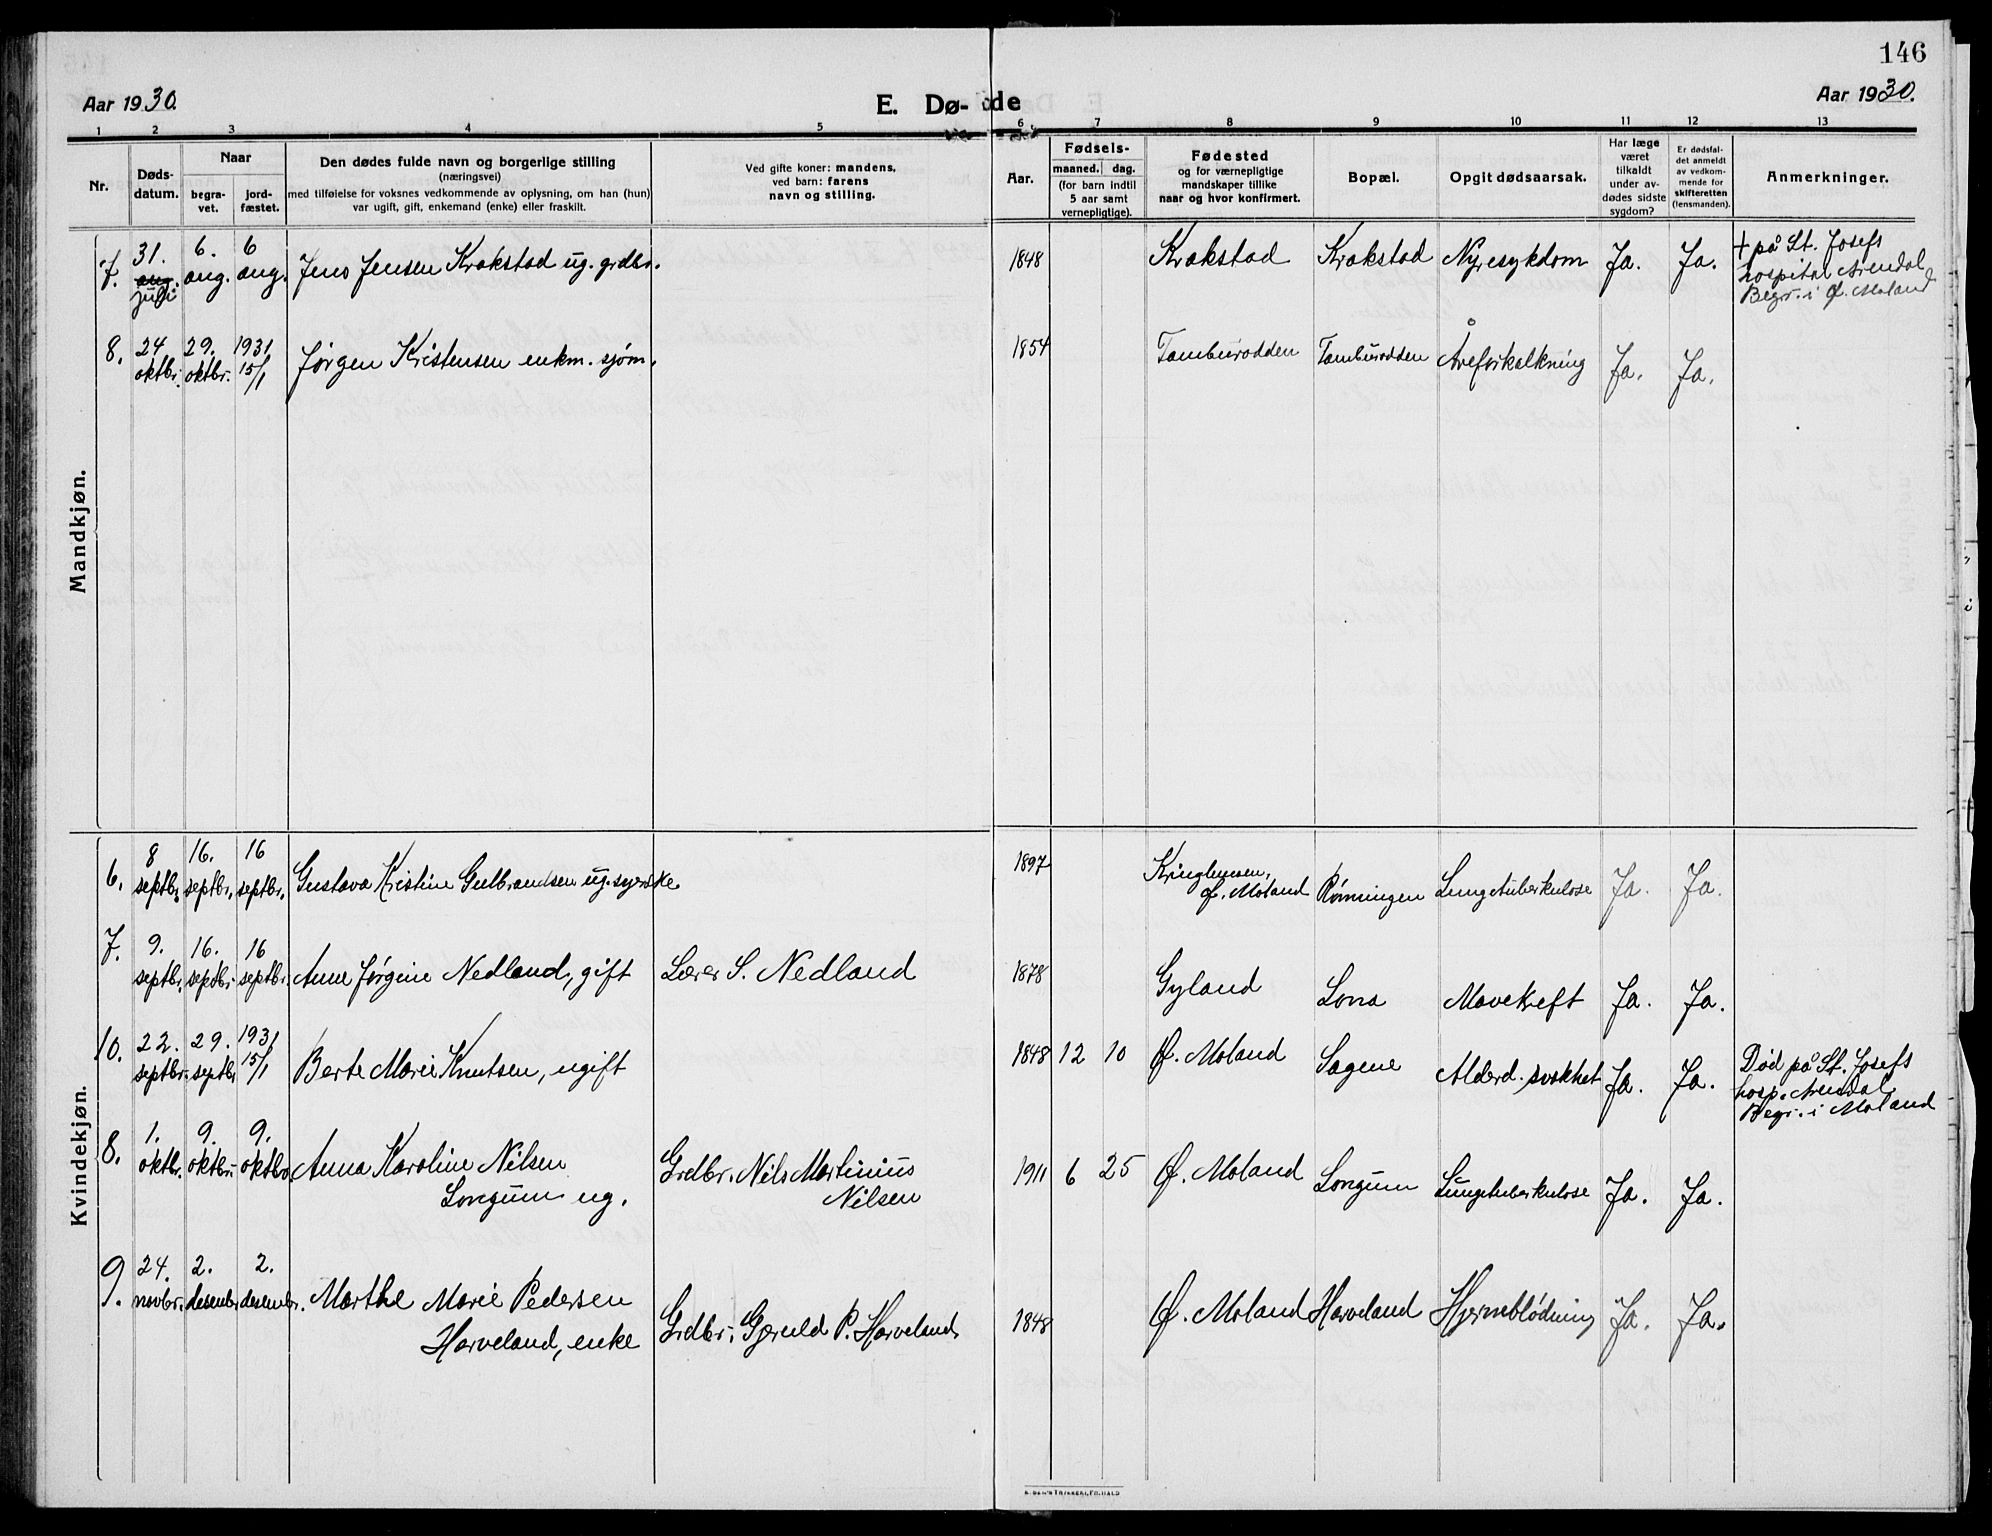 146
Aar 1930.
E. Dø- de
Aar 1930.
1 2 3 4 5 6 7 8 9 10 11 12 13
Nr.
Døds-
datum.
Naar
begra-
vet.
jord-
fæstet.
Den dødes fulde navn og borgerlige stilling
(næringsvei)
med tilføielse for voksnes vedkommende av oplysning, om han (hun)
var ugift, gift, enkemand (enke) eller fraskilt.
Ved gifte koner: mandens,
ved barn: farens
navn og stilling.
Aar.
Fødsels-
maaned. dag.
(for barn indtil
5 aar samt
vernepligtige).
Fødested
og for værnepligtige
mandskaper tillike
naar og hvor konfirmert.
Bopæl.
Opgit dødsaarsak.
Har læge
været
tilkaldt
under av-
dødes sidste
sygdom?
Er dødsfal-
det anmeldt
av vedkom-
mende for
skifteretten
(lensmanden).
Anmerkninger.
Mandkjøn.
7. 31. aug. juli 6. aug. 6 aug. Jens Jensen Krokstad ug. grdbr. 1848 Krokstad Krokstad Nyresykdom Ja. Ja. + på St. Josefs
hospital Arendal
Begr. i Ø. Moland
8. 24 oktbr. 29. oktbr. 1931 15/1 Jørgen Kristensen enkm. sjøm. 1854 Tamburodden Tamburodden Åreforkalkning Ja. Ja.
Kvindekjøn.
6. 8 septbr. 16. septbr. 16 septbr. Gustava Kristine Gulbrandsen ug. syerske 1897
Ø. Moland Rønningen Lungetuberkulose Ja. Ja.
7. 9. septbr. 16. septbr. 16 septbr. Anne Jørgine Nedland, gift Lærer S. Nedland 1878 Gyland Lona Mavekreft Ja. Ja.
10. 22. septbr. 29. septbr 1931 15/1 Berte Marie Knutsen, ugift 1848 12 10 Ø. Moland Sagene Alderd. svakhet Ja. Ja. Død på St. Josefs
hosp. Arendal
Begr. i Moland
8. 1. oktbr. 9. oktbr. 9. oktbr Anna Karoline Nilsen
Longum ug.
Grdbr. Nils Martinius
Nilsen
1911 6 25 Ø. Moland Longum Lungetuberkulose Ja. Ja.
9. 24. novbr. 2. desenbr 2. desembr. Marthe Marie Pedersen
Harveland, enke
Grdbr. Gjeruld P. Harveland 1848 Ø. Moland Harveland Hjerneblødning Ja. Ja.